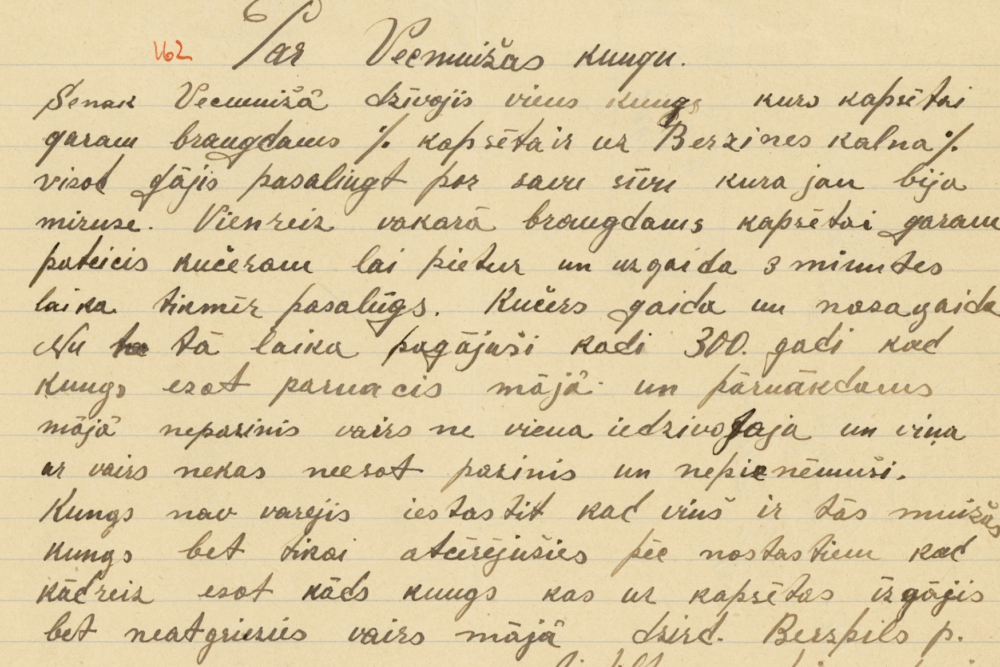 162 Par Vecmuižas kungu.
Senak Vecmuižā dzīvojis viens kungs kurs kapsētai
garam braugdams ⁒ kapsēta ir uz Berzines kalna ⁒
visod gājis pasalīugt por savu sivu kura jau bija
miruse. Vienreiz vakarā braugdams kapsētai garam
pateicis kučeram lai pietur un uzgaida 3 minutes
laika tikmēr pasalūgs. Kučers gaida un nasagaida
Nu tā laika pagājuši kadi 300. gadi kad
kungs esot parnacis mājā un pārnākdams
mājā nepasinis vairs ne viena iedzivotaja un viņa
ar vairs nekas neesot pasinis un nepienēmuši.
Kungs nav varejis iestastit kad viņš ir tās muižas
kungs bet tikai atcerējušies pēc nostastiem kad
kādreiz esot kāds kungs kas uz kapsētas izgājis
bet neatgriezies vairs mājā dzird. Berzpils p.